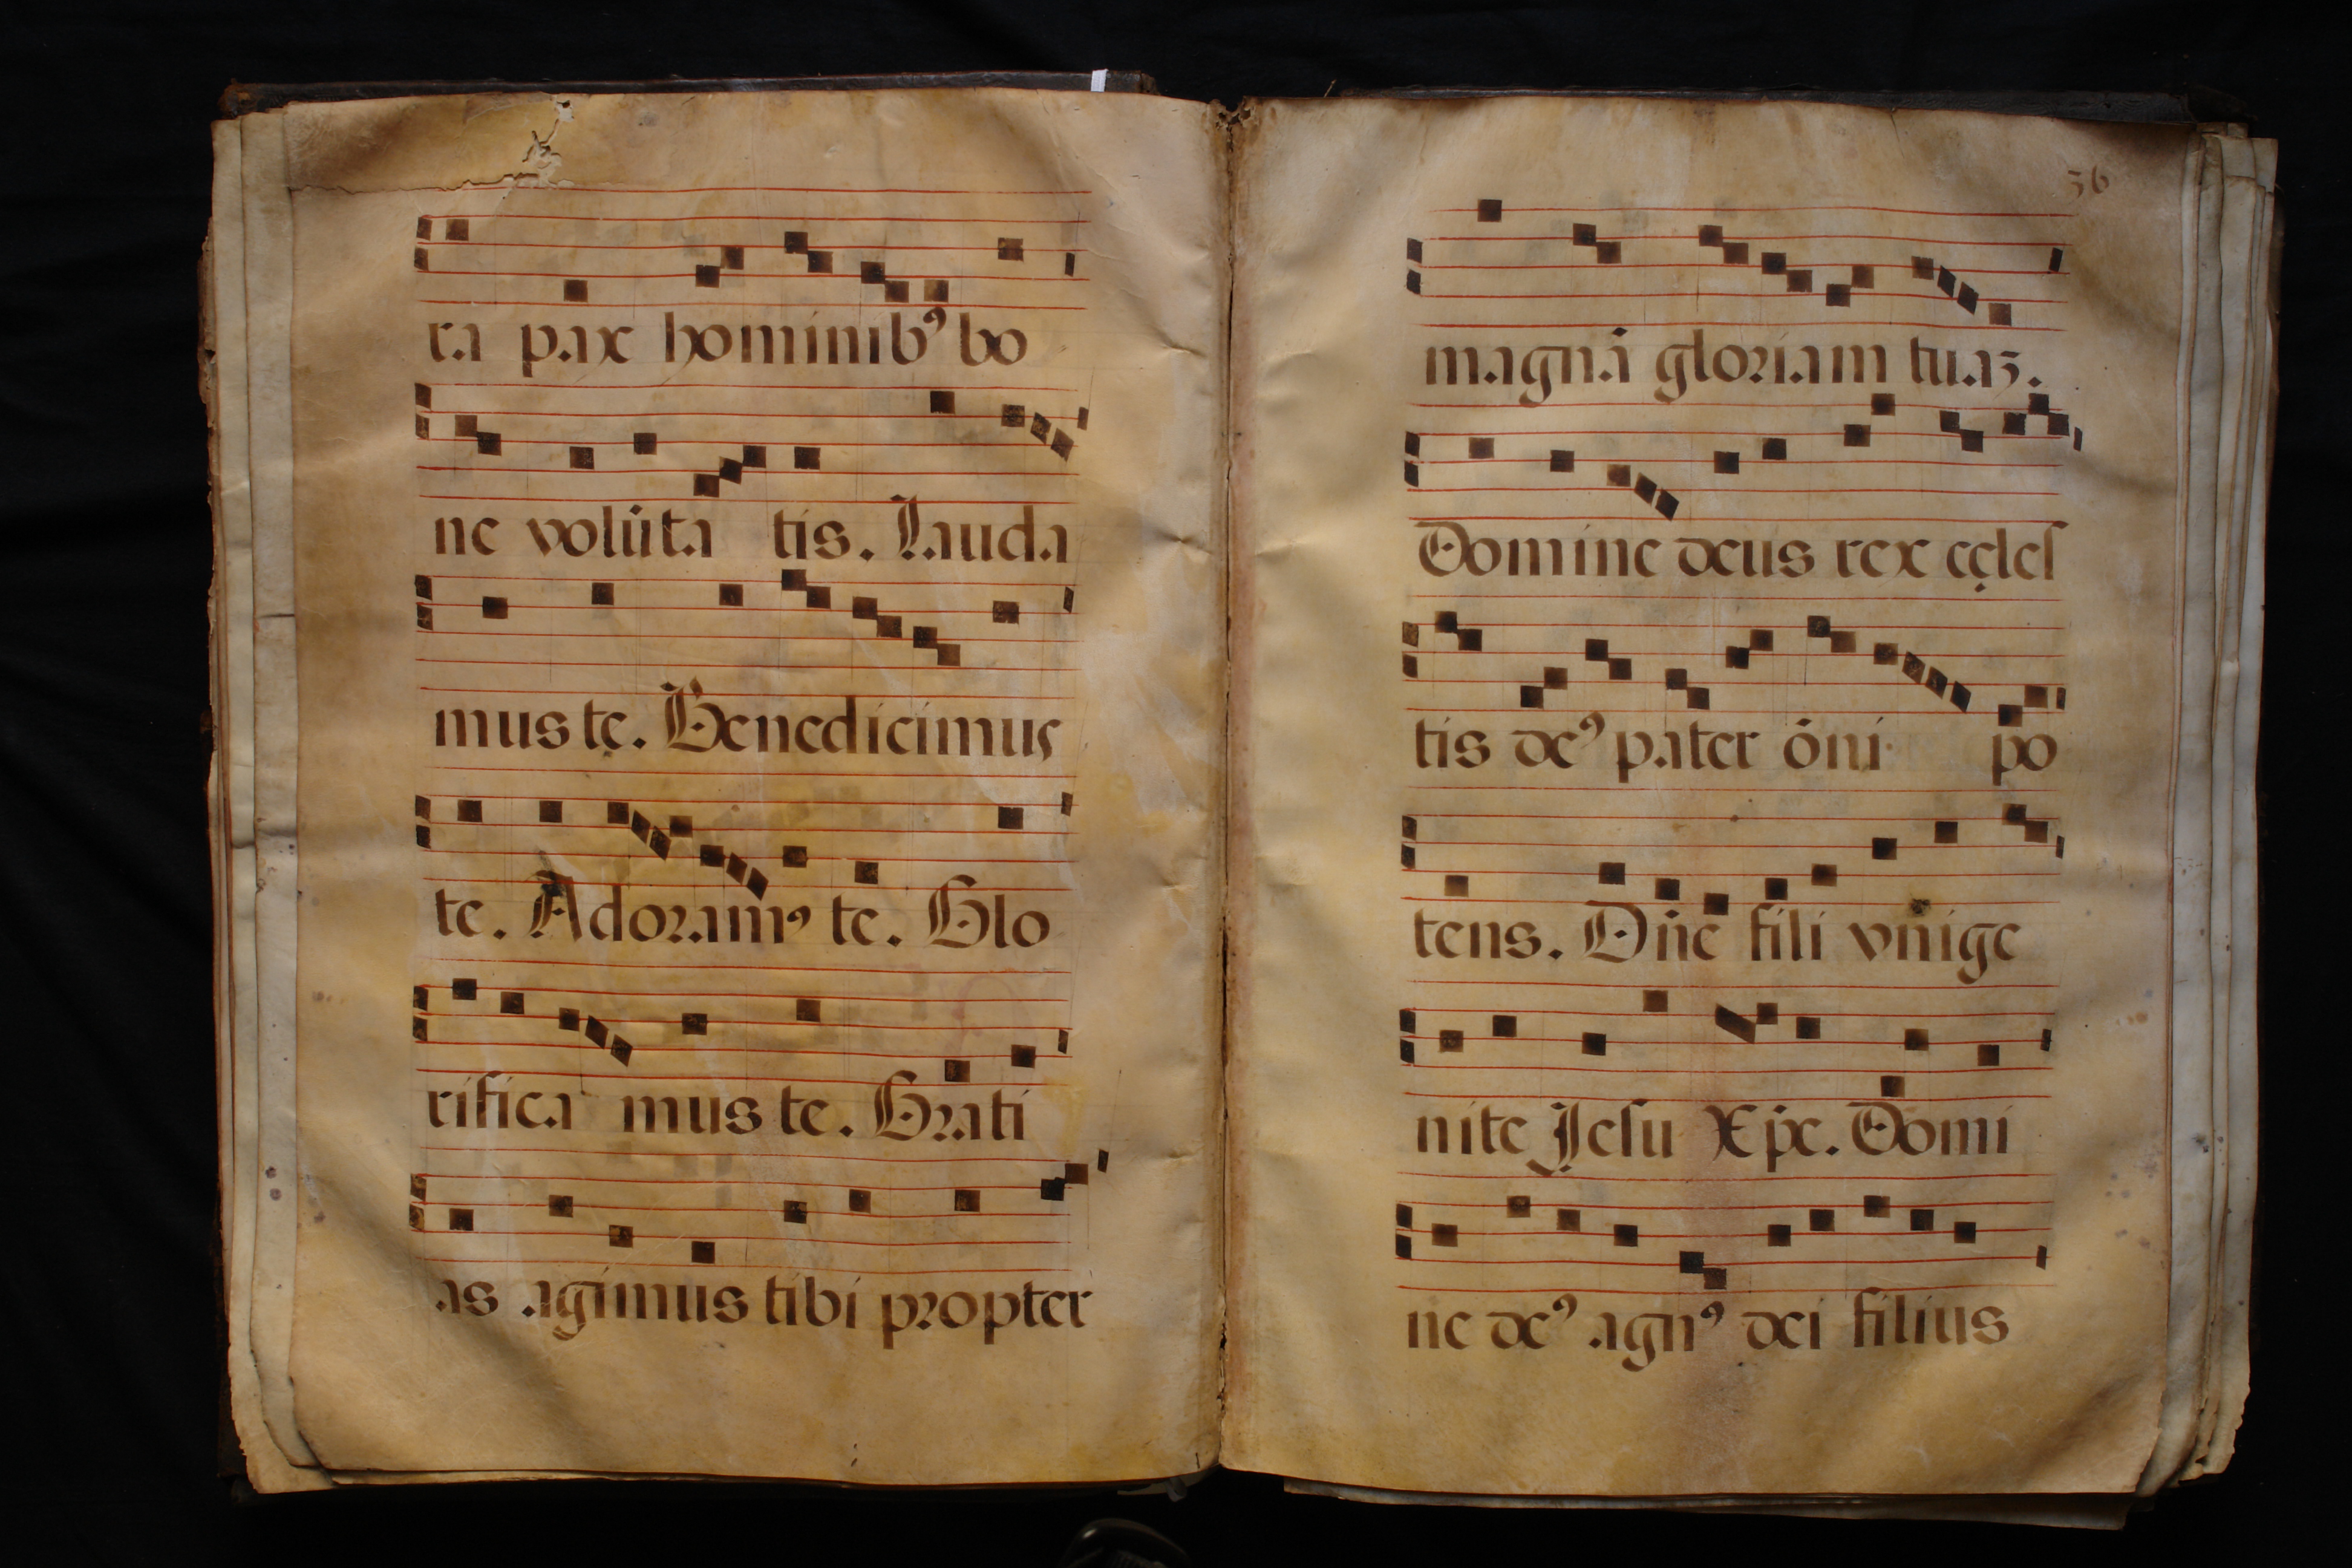 ra pax hominibꝰ bo
ne volūta tis. Lauda
mus te. Benedicimus
te. Adoramꝰ te. Glo
rifica mus te. Grati
as agimus tibi propter
36
magnā gloriam tuaꝫ.
Domine deus rex cęleſ
tis deꝰ pater ōni po
tens. Dn̄e fili vnige
nite Jeſu Xp̄e. Domi
ne deꝰ agnꝰ dei filius